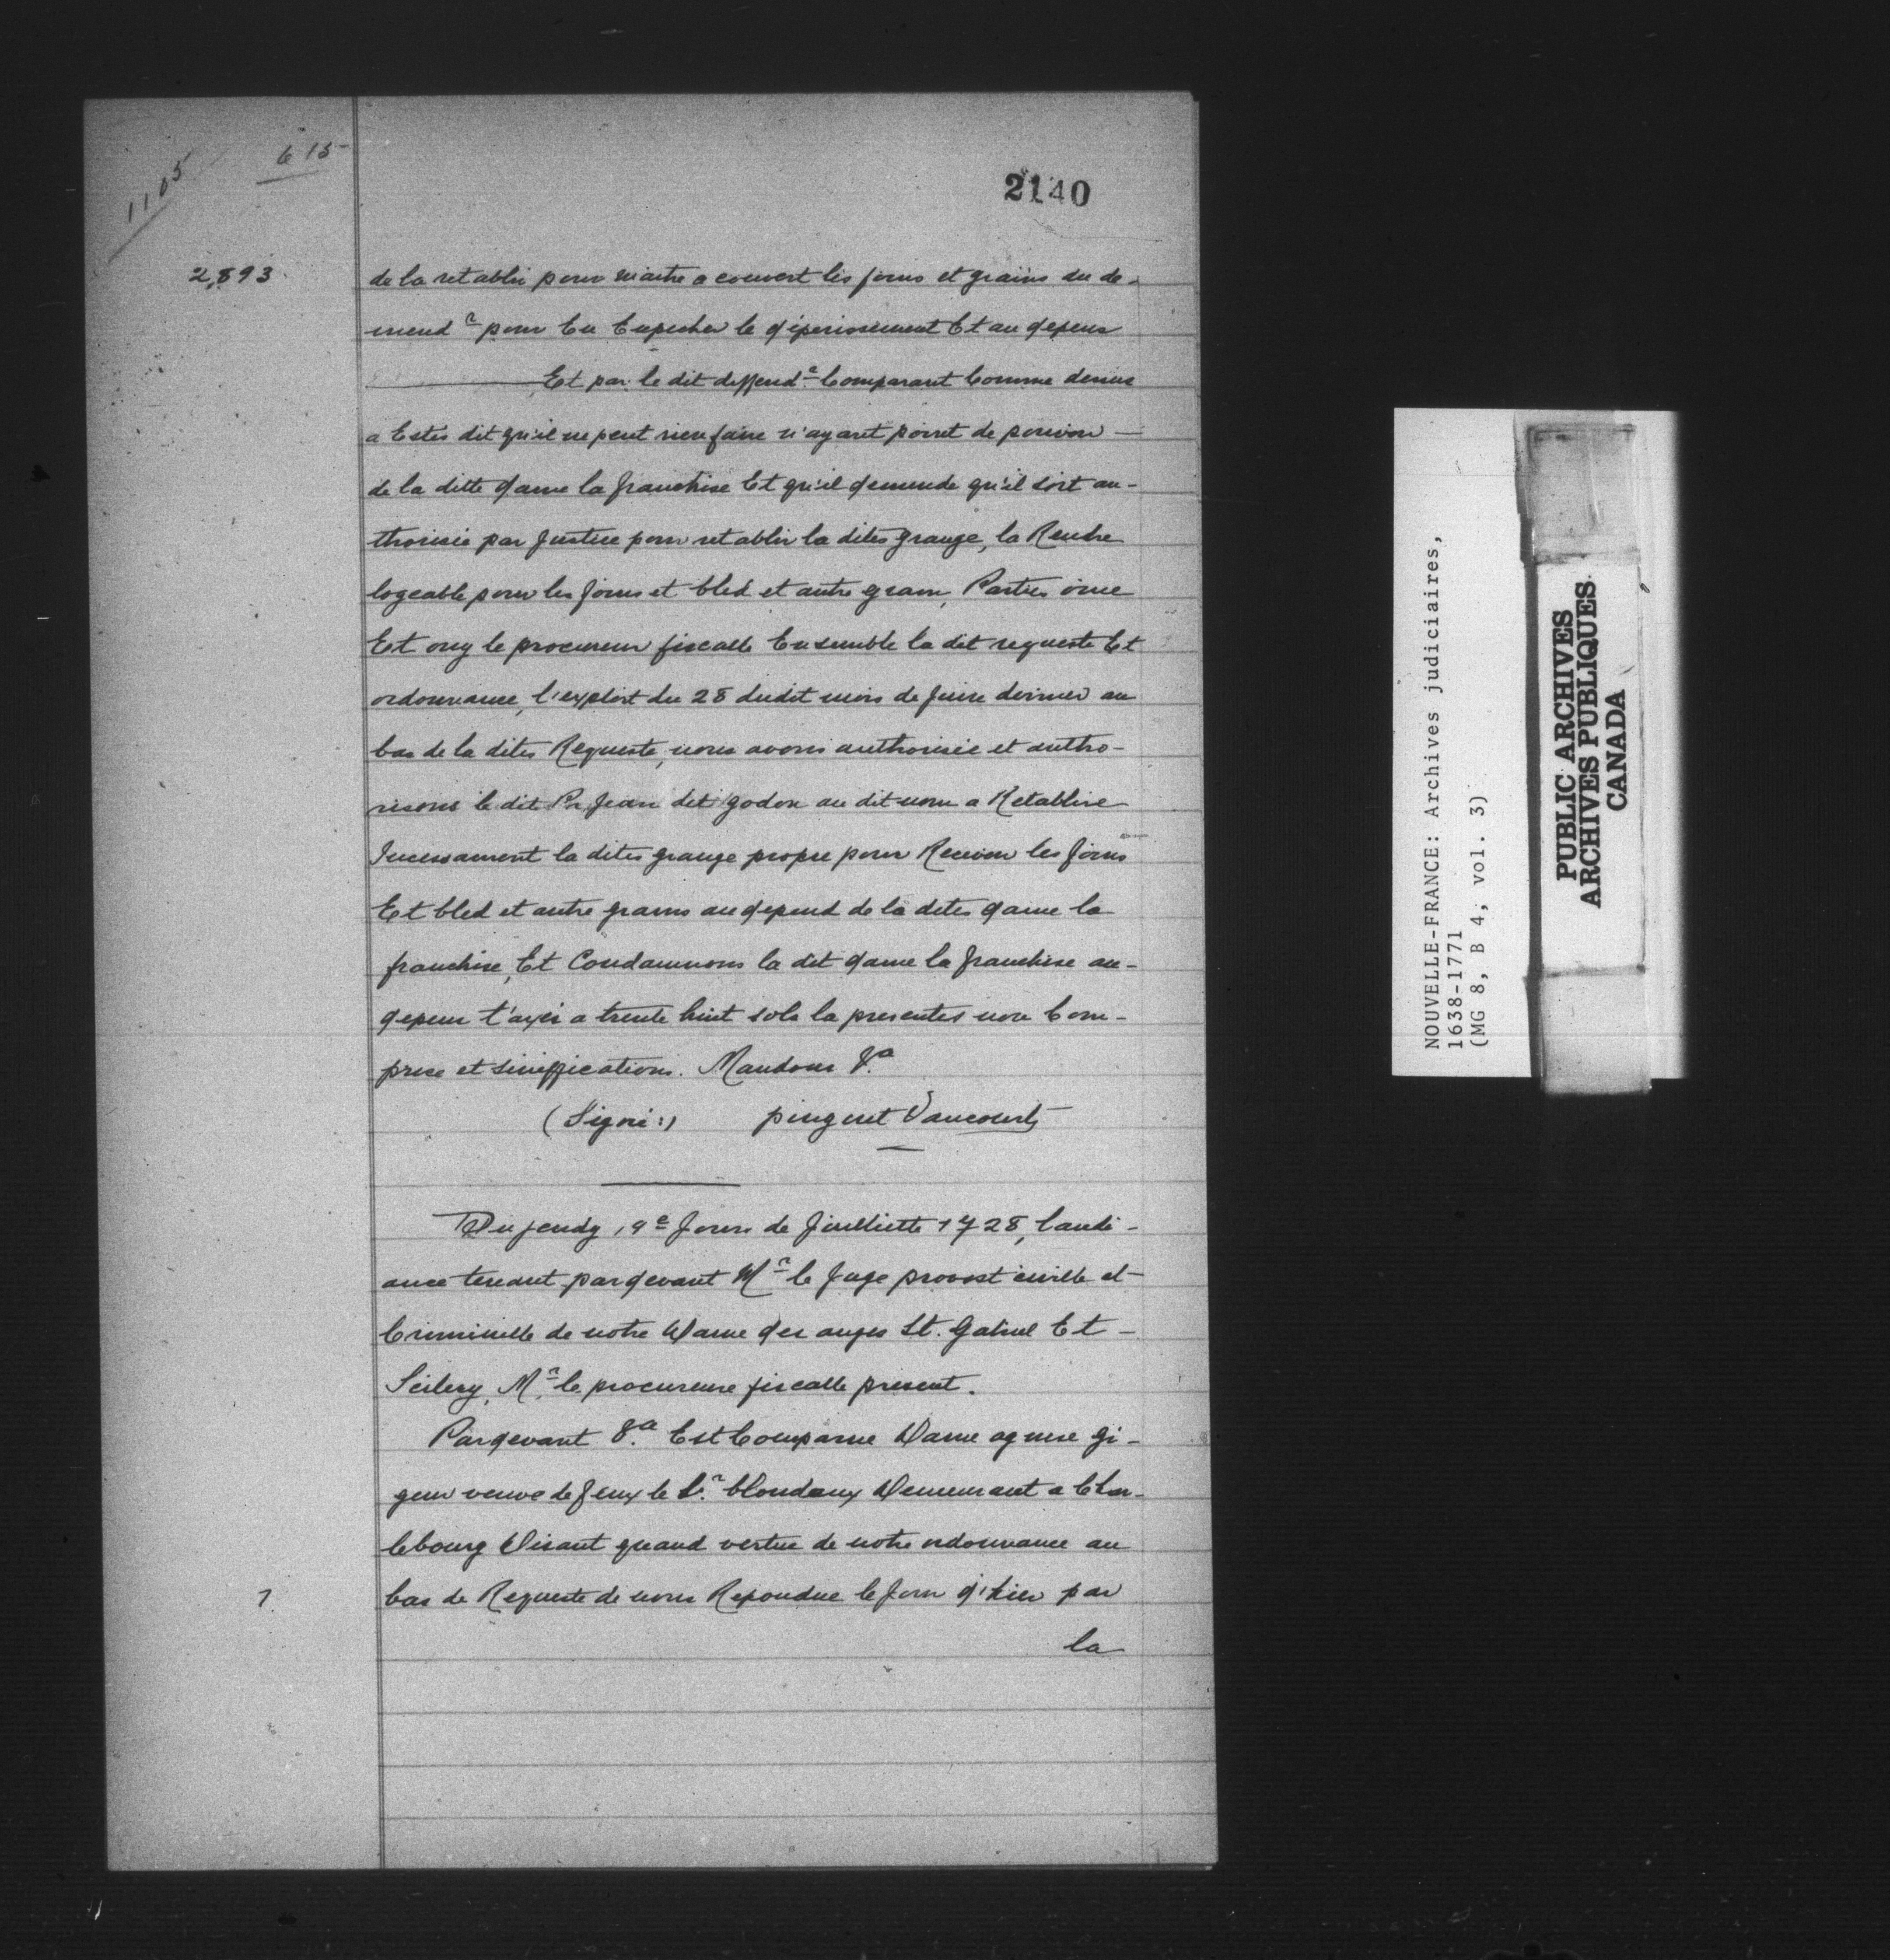 1105
615
2140
2,893
de la retablir pour maitre a couvert les foins et grains du de-
mend.r pour En Empecher le déperissement Et au depens
Et par le dit deffend.r Comparant Comme dessus
a Estes dit qu'il ne peut rien faire n'ayant point de pouvoir
de la ditte dame la franchise Et qu'il demende qu'il soit au-
thorisée par Justice pour retablir la dites grange, la Rendre
logeable pour les foins et bled et autre grain, Parties ouïe
Et ouy le procureur fiscalle Ensemble la dit requeste Et
ordonnance, l'exploit du 28 dudit mois de Juin dernier au
bas de la dites Requeste, nous avons authorisée et autho-
risons le dit Pr. Jean dit godon au dit nom a Retablire
Incessament la dites grange propre pour Recevoir les foins
Et bled et autre grains au depend de la dites dame la
franchise, Et Condamnons la dit dame la franchise au-
depens t'axés a trente huit sols la presentes non Com-
prise et siniffications. Mandons &.a
(Signé:) pinguet Vaucourts
Du jeudy, 9e Jours de Juilliette 1728, l'audi-
ance tenant pardevant M.r le Juge provost civille et
Criminelle de notre Dame des anges St. Gabriel Et
Seilery, M.r le procureure fiscalle present.
Pardevant &.a Est Comparue Dame agnese gi-
geur veuve de feux le S.r blondeaux Demeurant a Char-
lebourg Disant quand vertue de notre ordonnance au
bas de Requeste de nous Repondue le Jour d'hier par
7.
la
NOUVELLE-FRANCE: Archives judiciaires,
1638-1771
(MG 8, B 4, vol. 3)
PUBLIC ARCHIVES
ARCHIVES PUBLIQUES
CANADA